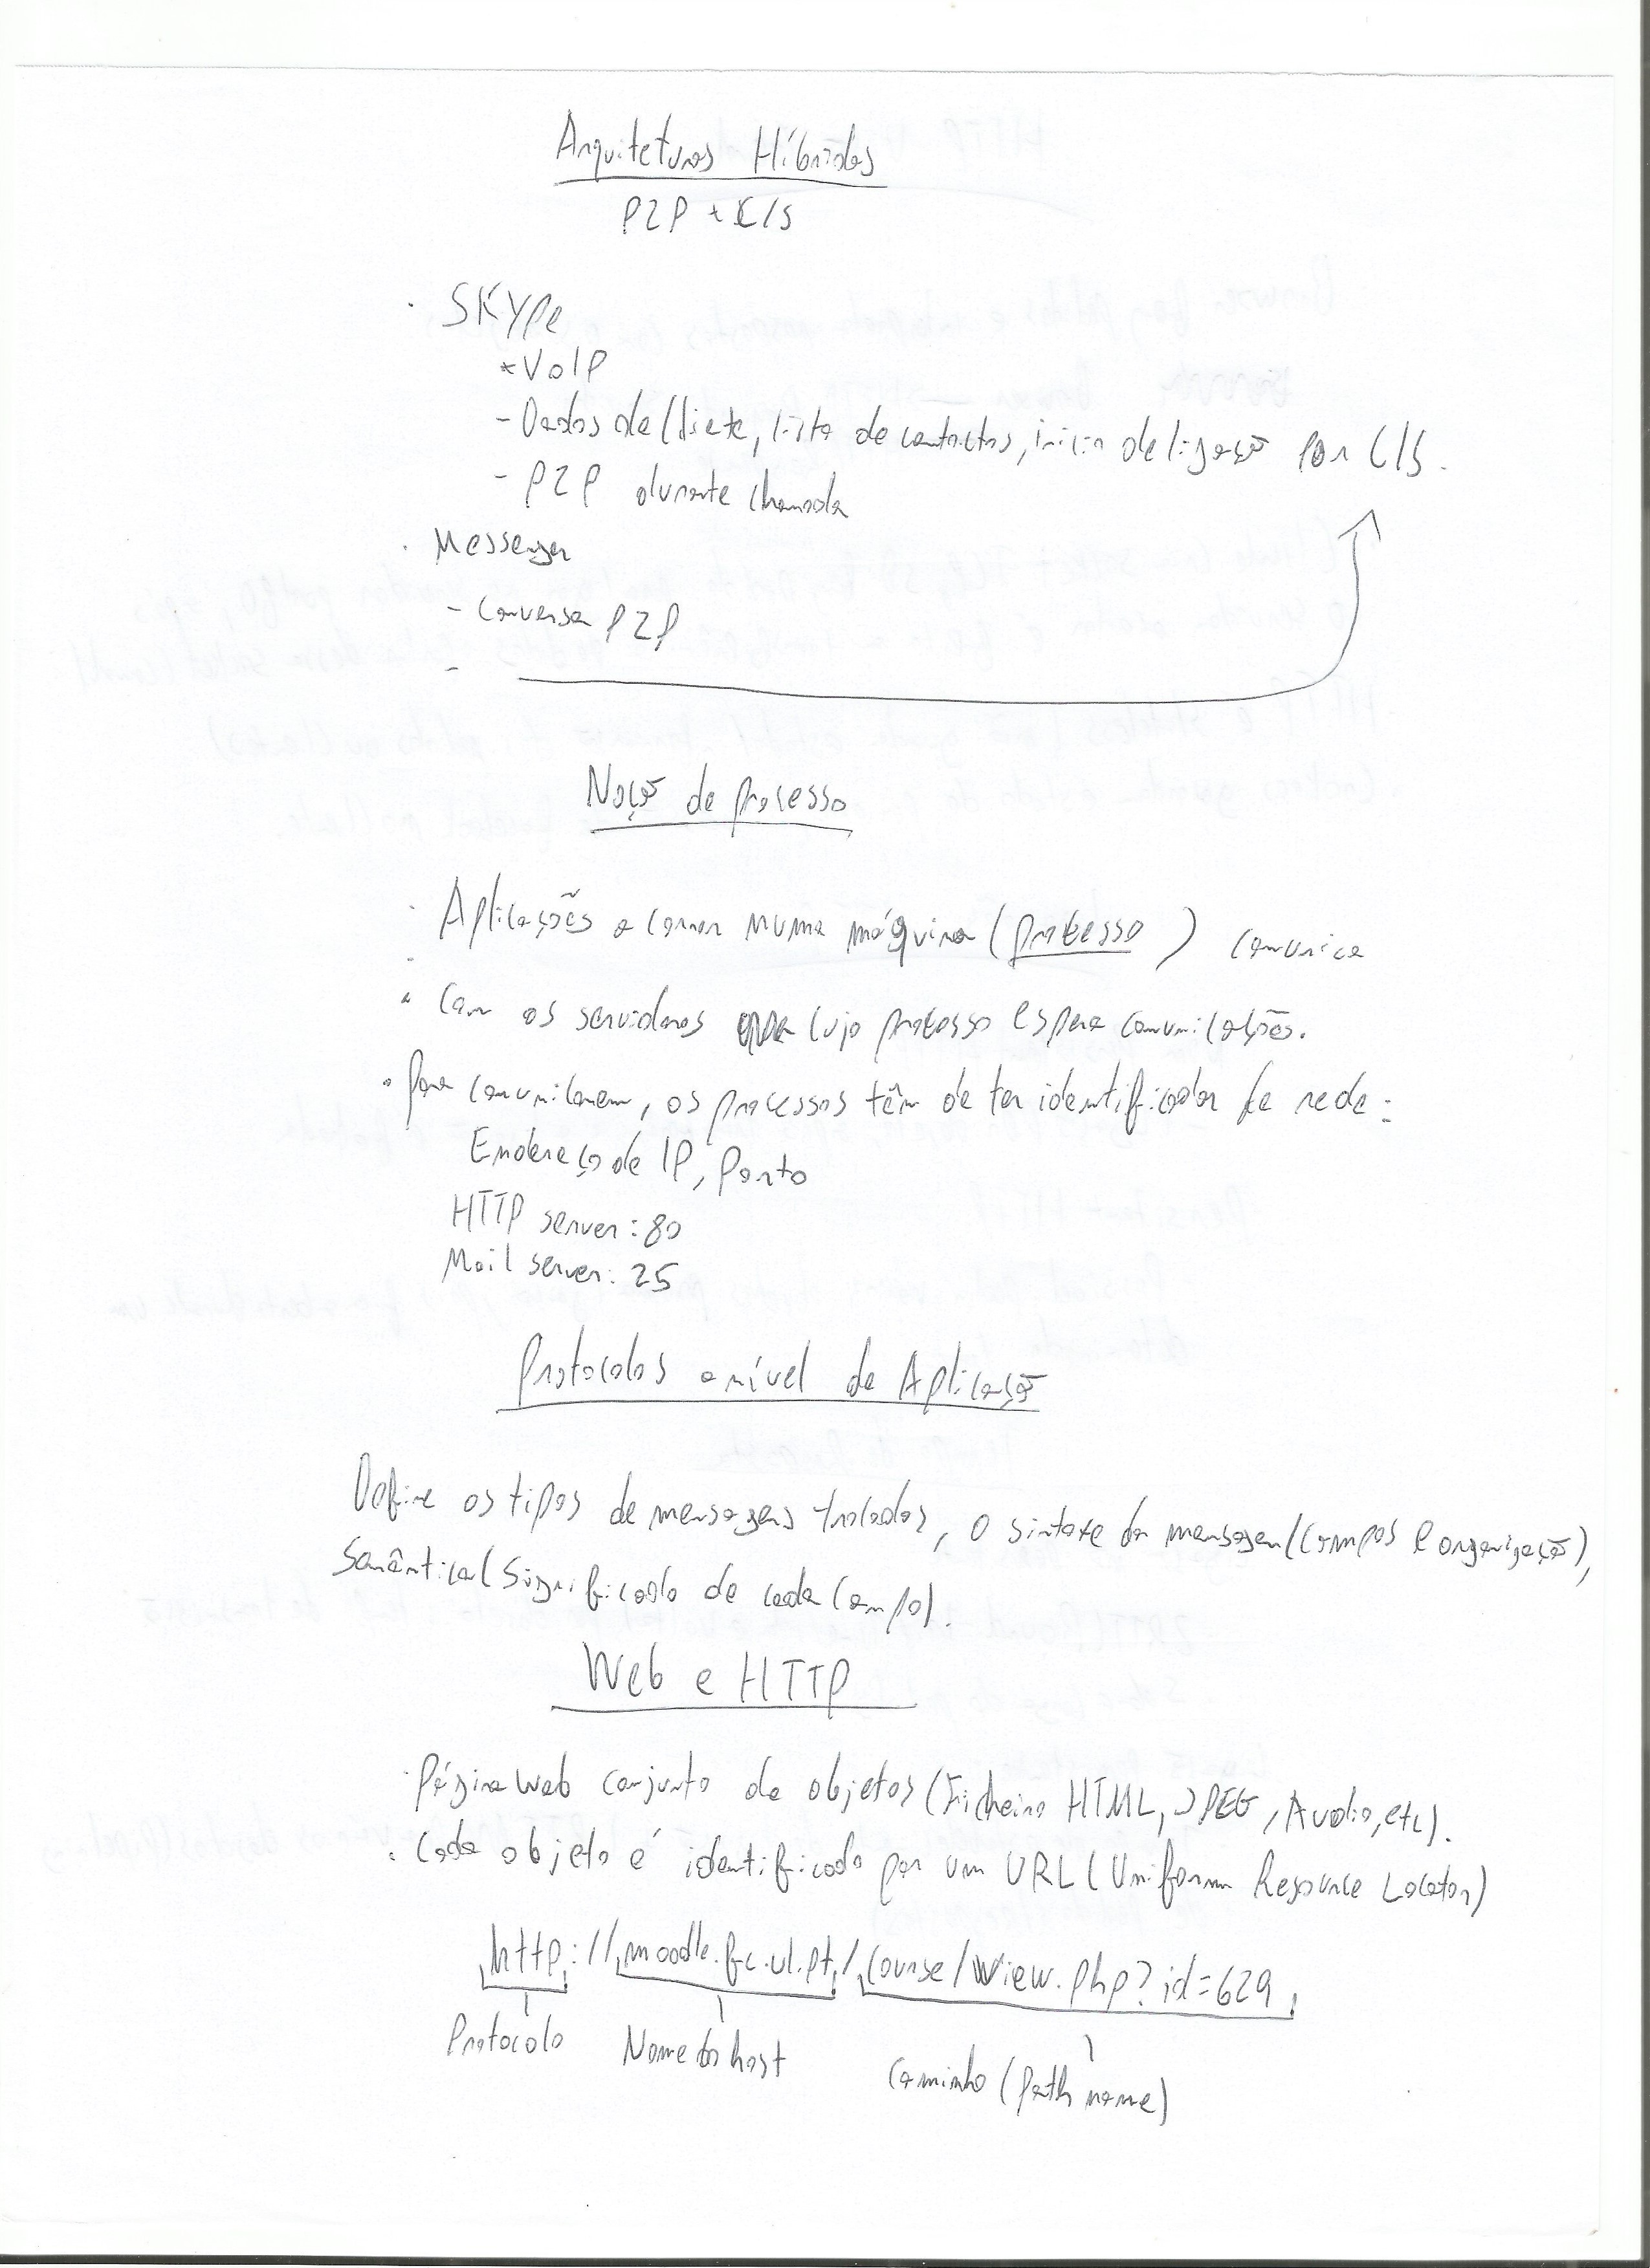 Arquiteturas Híbridas
P2P + C/S
· SKYPe
* VoIP
- Dados de Cliete, lista de contactos, início de ligação por C/S.
- P2P durante chamada
· Messenger
- Conversa P2P
-
Noção de processo
· Aplicações a correr numa máquina (processo) comunica
· Com os servidores cujo processo espera comunicações.
· Para comunicarem, os processos têm de ter identificador de rede:
Endereço de IP, Porto
HTTP server: 80
Mail server: 25
Protocolos a nível de Aplicação
Define os tipos de mensagens trocadas, o sintaxe da mensagem (Campos e organização),
Semântica (Significado de cada Campo).
Web e HTTP
· Página Web conjunto de objetos (Ficheiro HTML, JPEG, Audio, etc).
· Cada objeto é identificado por um URL (Uniform Resource Locator)
http://moodle.fc.ul.pt/course/view.php?id=629
Protocolo Nome do host
Caminho (Path name)